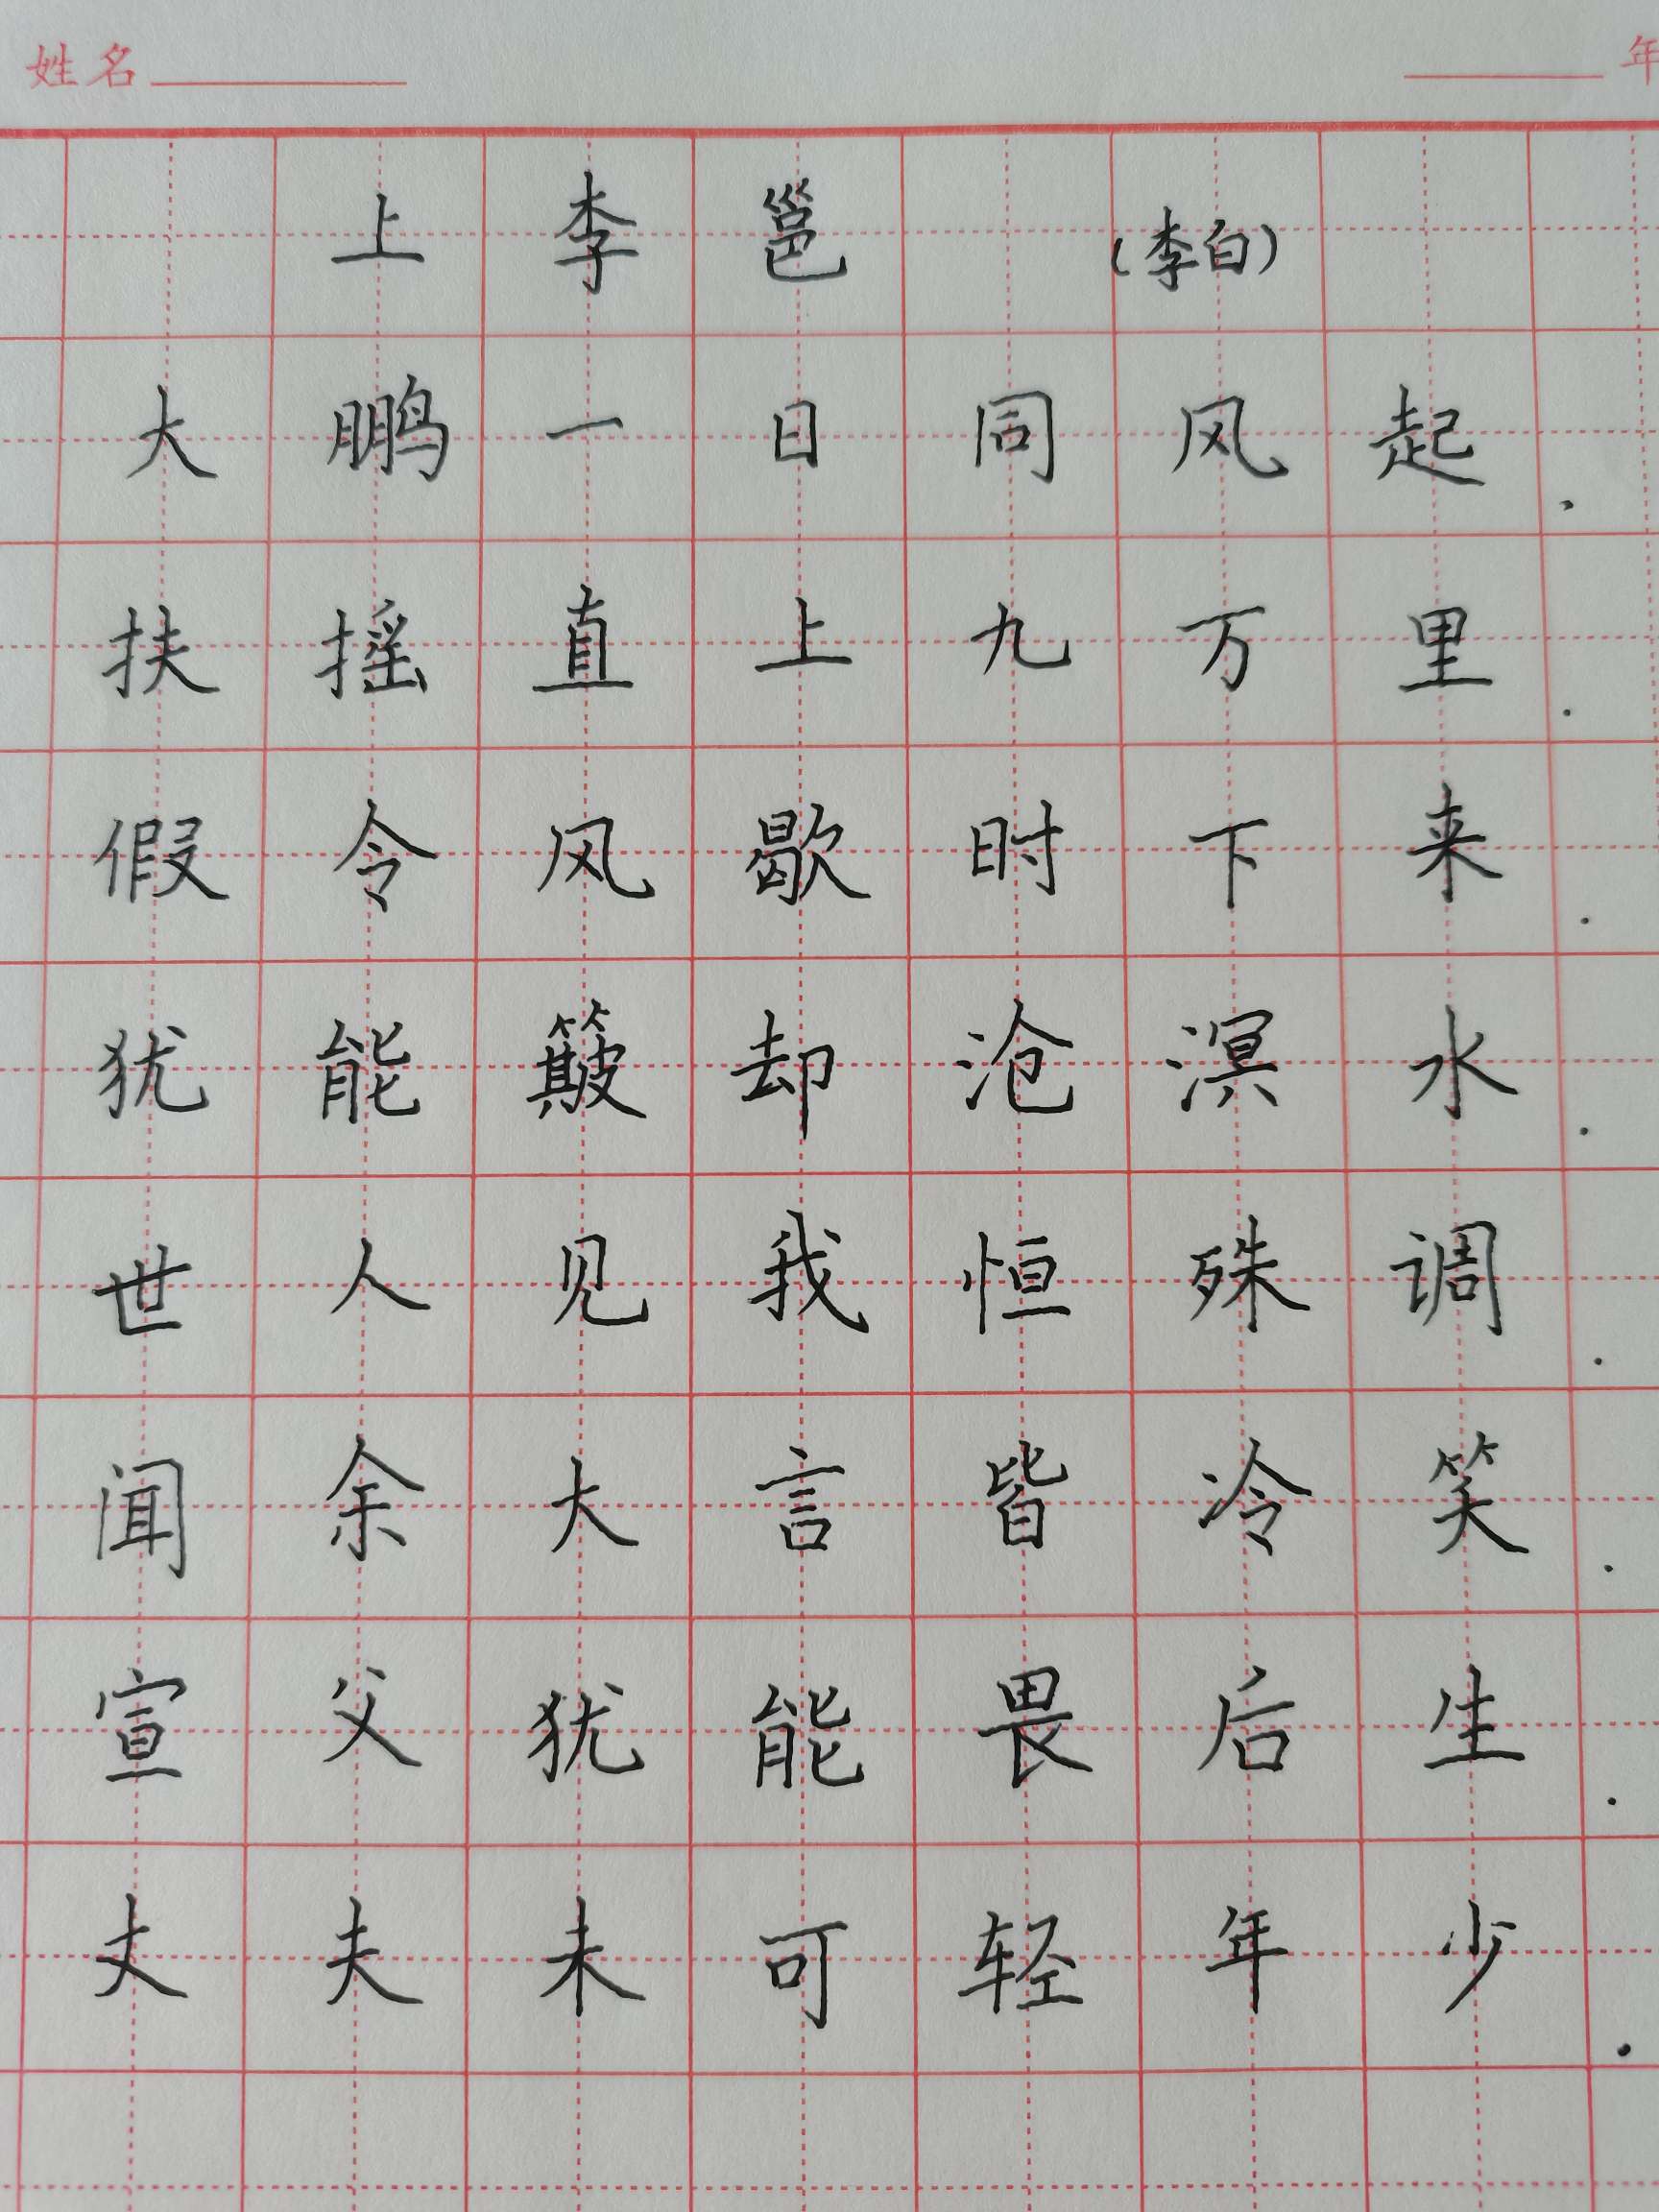 姓名 年
上李邕 (李白)
大鹏一日同风起.
扶摇直上九万里.
假令风歇时下来.
犹能簸却沧溟水.
世人见我恒殊调.
闻余大言皆冷笑.
宣父犹能畏后生.
丈夫未可轻年少.